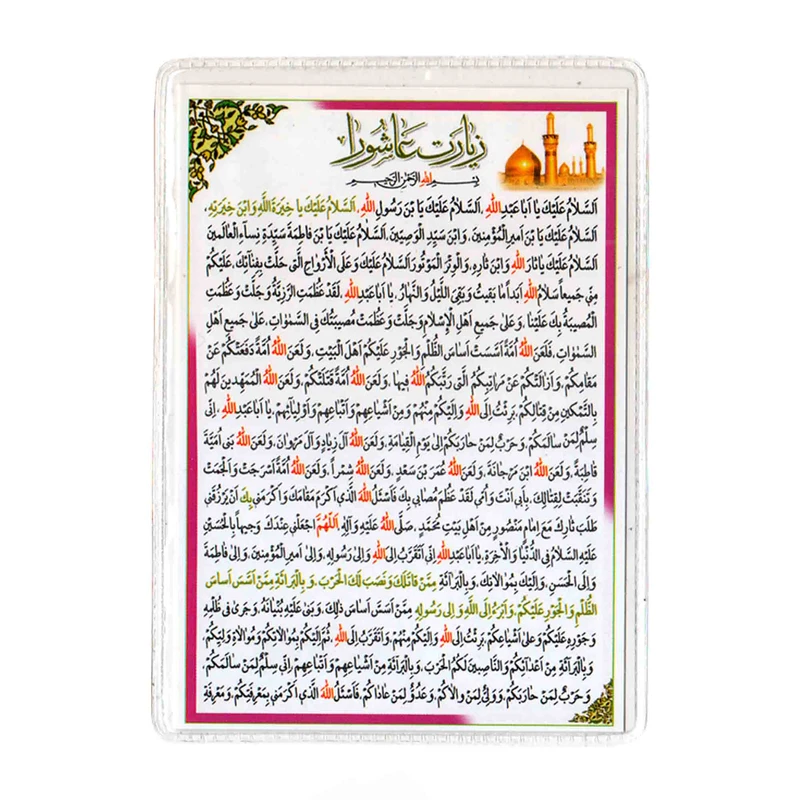 زیارت عاشورا
بِسْمِ اللهِ الرَّحْمٰنِ الرَّحیمِ
اَلسَّلامُ عَلَیْکَ یا اَبا عَبْدِ اللهِ، اَلسَّلامُ عَلَیْکَ یَا بْنَ رَسُولِ اللهِ، اَلسَّلامُ عَلَیْکَ یا خِیَرَةَ اللَّهِ وَابْنَ خِیَرَتِهِ،
اَلسَّلامُ عَلَیْکَ یَا بْنَ اَمیرِ الْمُؤْمِنینَ، وَابْنَ سَیِّدِ الْوَصِیّینَ، اَلسَّلامُ عَلَیْکَ یَا بْنَ فاطِمَةَ سَیِّدَةِ نِساءِ الْعالَمینَ
اَلسَّلامُ عَلَیْکَ یا ثارَ اللهِ وَابْنَ ثارِهِ، وَالْوِتْرَ الْمَوْتُورَ اَلسَّلامُ عَلَیْکَ وَعَلَی الْأَرْواحِ الَّتی حَلَّتْ بِفِنآئِکَ، عَلَیْکُمْ
مِنّی جَمیعاً سَلامُ اللهِ اَبَداً ما بَقیتُ وَبَقِیَ اللَّیْلُ وَالنَّهارُ، یا اَبا عَبْدِ اللهِ، لَقَدْ عَظُمَتِ الرَّزِیَّةُ وَ جَلَّتْ وَ عَظُمَتِ
الْمُصیبَةُ بِکَ عَلَیْنا، وَ عَلی جَمیعِ اَهْلِ الْاِسْلامِ وَ جَلَّتْ وَ عَظُمَتْ مُصیبَتُکَ فِی السَّمٰواتِ، عَلی جَمیعِ اَهْلِ
السَّمٰواتِ، فَلَعَنَ اللهُ اُمَّةً اَسَّسَتْ اَساسَ الظُّلْمِ وَ الْجَوْرِ عَلَیْکُمْ اَهْلَ الْبَیْتِ، وَ لَعَنَ اللهُ اُمَّةً دَفَعَتْکُمْ عَنْ
مَقامِکُمْ، وَ اَزالَتْکُمْ عَنْ مَراتِبِکُمُ الَّتی رَتَّبَکُمُ اللهُ فیها، وَ لَعَنَ اللهُ اُمَّةً قَتَلَتْکُمْ، وَ لَعَنَ اللهُ الْمُمَهِّدینَ لَهُمْ
بِالتَّمْکینِ مِنْ قِتالِکُمْ، بَرِئْتُ اِلَی اللهِ وَ اِلَیْکُمْ مِنْهُمْ وَ مِنْ اَشْیاعِهِمْ وَ اَتْباعِهِمْ وَ اَوْلِیآئِهِمْ، یا اَبا عَبْدِ اللهِ، اِنّی
سِلْمٌ لِمَنْ سالَمَکُمْ، وَ حَرْبٌ لِمَنْ حارَبَکُمْ اِلی یَوْمِ الْقِیامَةِ، وَ لَعَنَ اللهُ آلَ زِیادٍ وَ آلَ مَرْوانَ، وَ لَعَنَ اللهُ بَنی اُمَیَّةَ
قاطِبَةً، وَ لَعَنَ اللهُ ابْنَ مَرْجانَةَ، وَ لَعَنَ اللهُ عُمَرَ بْنَ سَعْدٍ، وَ لَعَنَ اللهُ شِمْراً، وَ لَعَنَ اللهُ اُمَّةً اَسْرَجَتْ وَ اَلْجَمَتْ
وَ تَنَقَّبَتْ لِقِتالِکَ، بِاَبی اَنْتَ وَ اُمّی لَقَدْ عَظُمَ مُصابی بِکَ فَاَسْئَلُ اللهَ الَّذی اَکْرَمَ مَقامَکَ وَ اَکْرَمَنی بِکَ اَنْ یَرْزُقَنی
طَلَبَ ثارِکَ مَعَ اِمامٍ مَنْصُورٍ مِنْ اَهْلِ بَیْتِ مُحَمَّدٍ، صَلَّی اللهُ عَلَیْهِ وَ آلِهِ، اَللّهُمَّ اجْعَلْنی عِنْدَکَ وَجیهاً بِالْحُسَیْنِ
عَلَیْهِ السَّلامُ فِی الدُّنْیا وَ الْآخِرَةِ، یا اَبا عَبْدِ اللهِ اِنّی اَتَقَرَّبُ اِلَی اللهِ وَ اِلی رَسُولِهِ، وَ اِلی اَمیرِ الْمُؤْمِنینَ، وَ اِلی فاطِمَةَ
وَ اِلَی الْحَسَنِ، وَ اِلَیْکَ بِمُوالاتِکَ، وَ بِالْبَرائَةِ مِمَّنْ قاتَلَکَ وَ نَصَبَ لَکَ الْحَرْبَ، وَ بِالْبَرائَةِ مِمَّنْ اَسَّسَ اَساسَ
الظُّلْمِ وَ الْجَوْرِ عَلَیْکُمْ، وَ اَبْرَءُ اِلَی اللَّهِ وَ اِلی رَسُولِهِ مِمَّنْ اَسَّسَ اَساسَ ذلِکَ، وَ بَنی عَلَیْهِ بُنْیانَهُ، وَ جَری فی ظُلْمِهِ
وَ جَوْرِهِ عَلَیْکُمْ وَ عَلی اَشْیاعِکُمْ، بَرِئْتُ اِلَی اللهِ وَ اِلَیْکُمْ مِنْهُمْ، وَ اَتَقَرَّبُ اِلَی اللهِ، ثُمَّ اِلَیْکُمْ بِمُوالاتِکُمْ وَ مُوالاةِ وَلِیِّکُمْ،
وَ بِالْبَرائَةِ مِنْ اَعْدآئِکُمْ وَ النّاصِبینَ لَکُمُ الْحَرْبَ، وَ بِالْبَرائَةِ مِنْ اَشْیاعِهِمْ وَ اَتْباعِهِمْ اِنّی سِلْمٌ لِمَنْ سالَمَکُمْ،
وَ حَرْبٌ لِمَنْ حارَبَکُمْ، وَ وَلِیٌّ لِمَنْ والاکُمْ، وَ عَدُوٌّ لِمَنْ عاداکُمْ، فَاَسْئَلُ اللهَ الَّذی اَکْرَمَنی بِمَعْرِفَتِکُمْ، وَ مَعْرِفَةِ